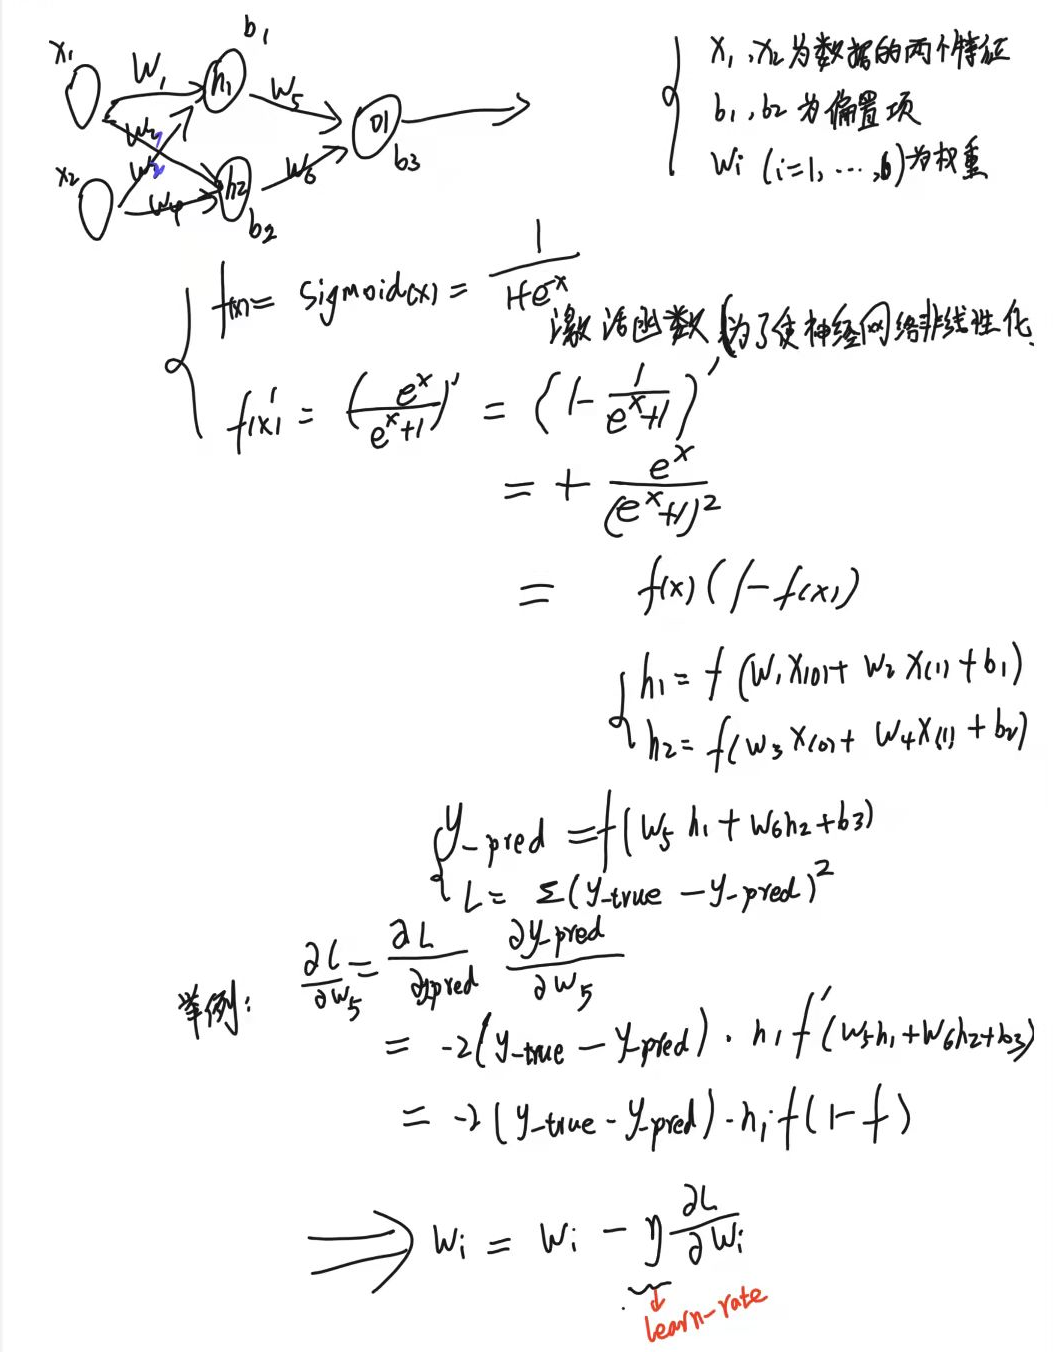 x₁ W₁ h₁ b₁ W₅
W₃ W₂ O1 b3
x₂ W₄ h2 b2 W₆
x₁,x₂为数据的两个特征
b₁,b₂为偏置项
Wi (i=1,…,6)为权重
f(x)= sigmoid(x) = 1/(1+e^-x)
激活函数(为了使神经网络非线性化
f(x)' = (e^x/(e^x+1))' = (1-1/(e^x+1))'
= + e^x/(e^x+1)²
= f(x)(1-f(x))
h₁ = f(W₁X(0)+W₂X(1)+b₁)
h₂=f(W₃X(0)+W₄X(1)+b₂)
y_pred =f(W₅h₁+W₆h₂+b3)
L= Σ(y_true-y_pred)²
举例: ∂L/∂W₅ = ∂L/∂y_pred ∂y_pred/∂W₅
= -2(y_true-y_pred)·h₁f'(W₅h₁+W₆h₂+b3)
= -2(y_true-y_pred)·h₁f(1-f)
⟹ Wi = Wi - η ∂L/∂Wi
learn-rate